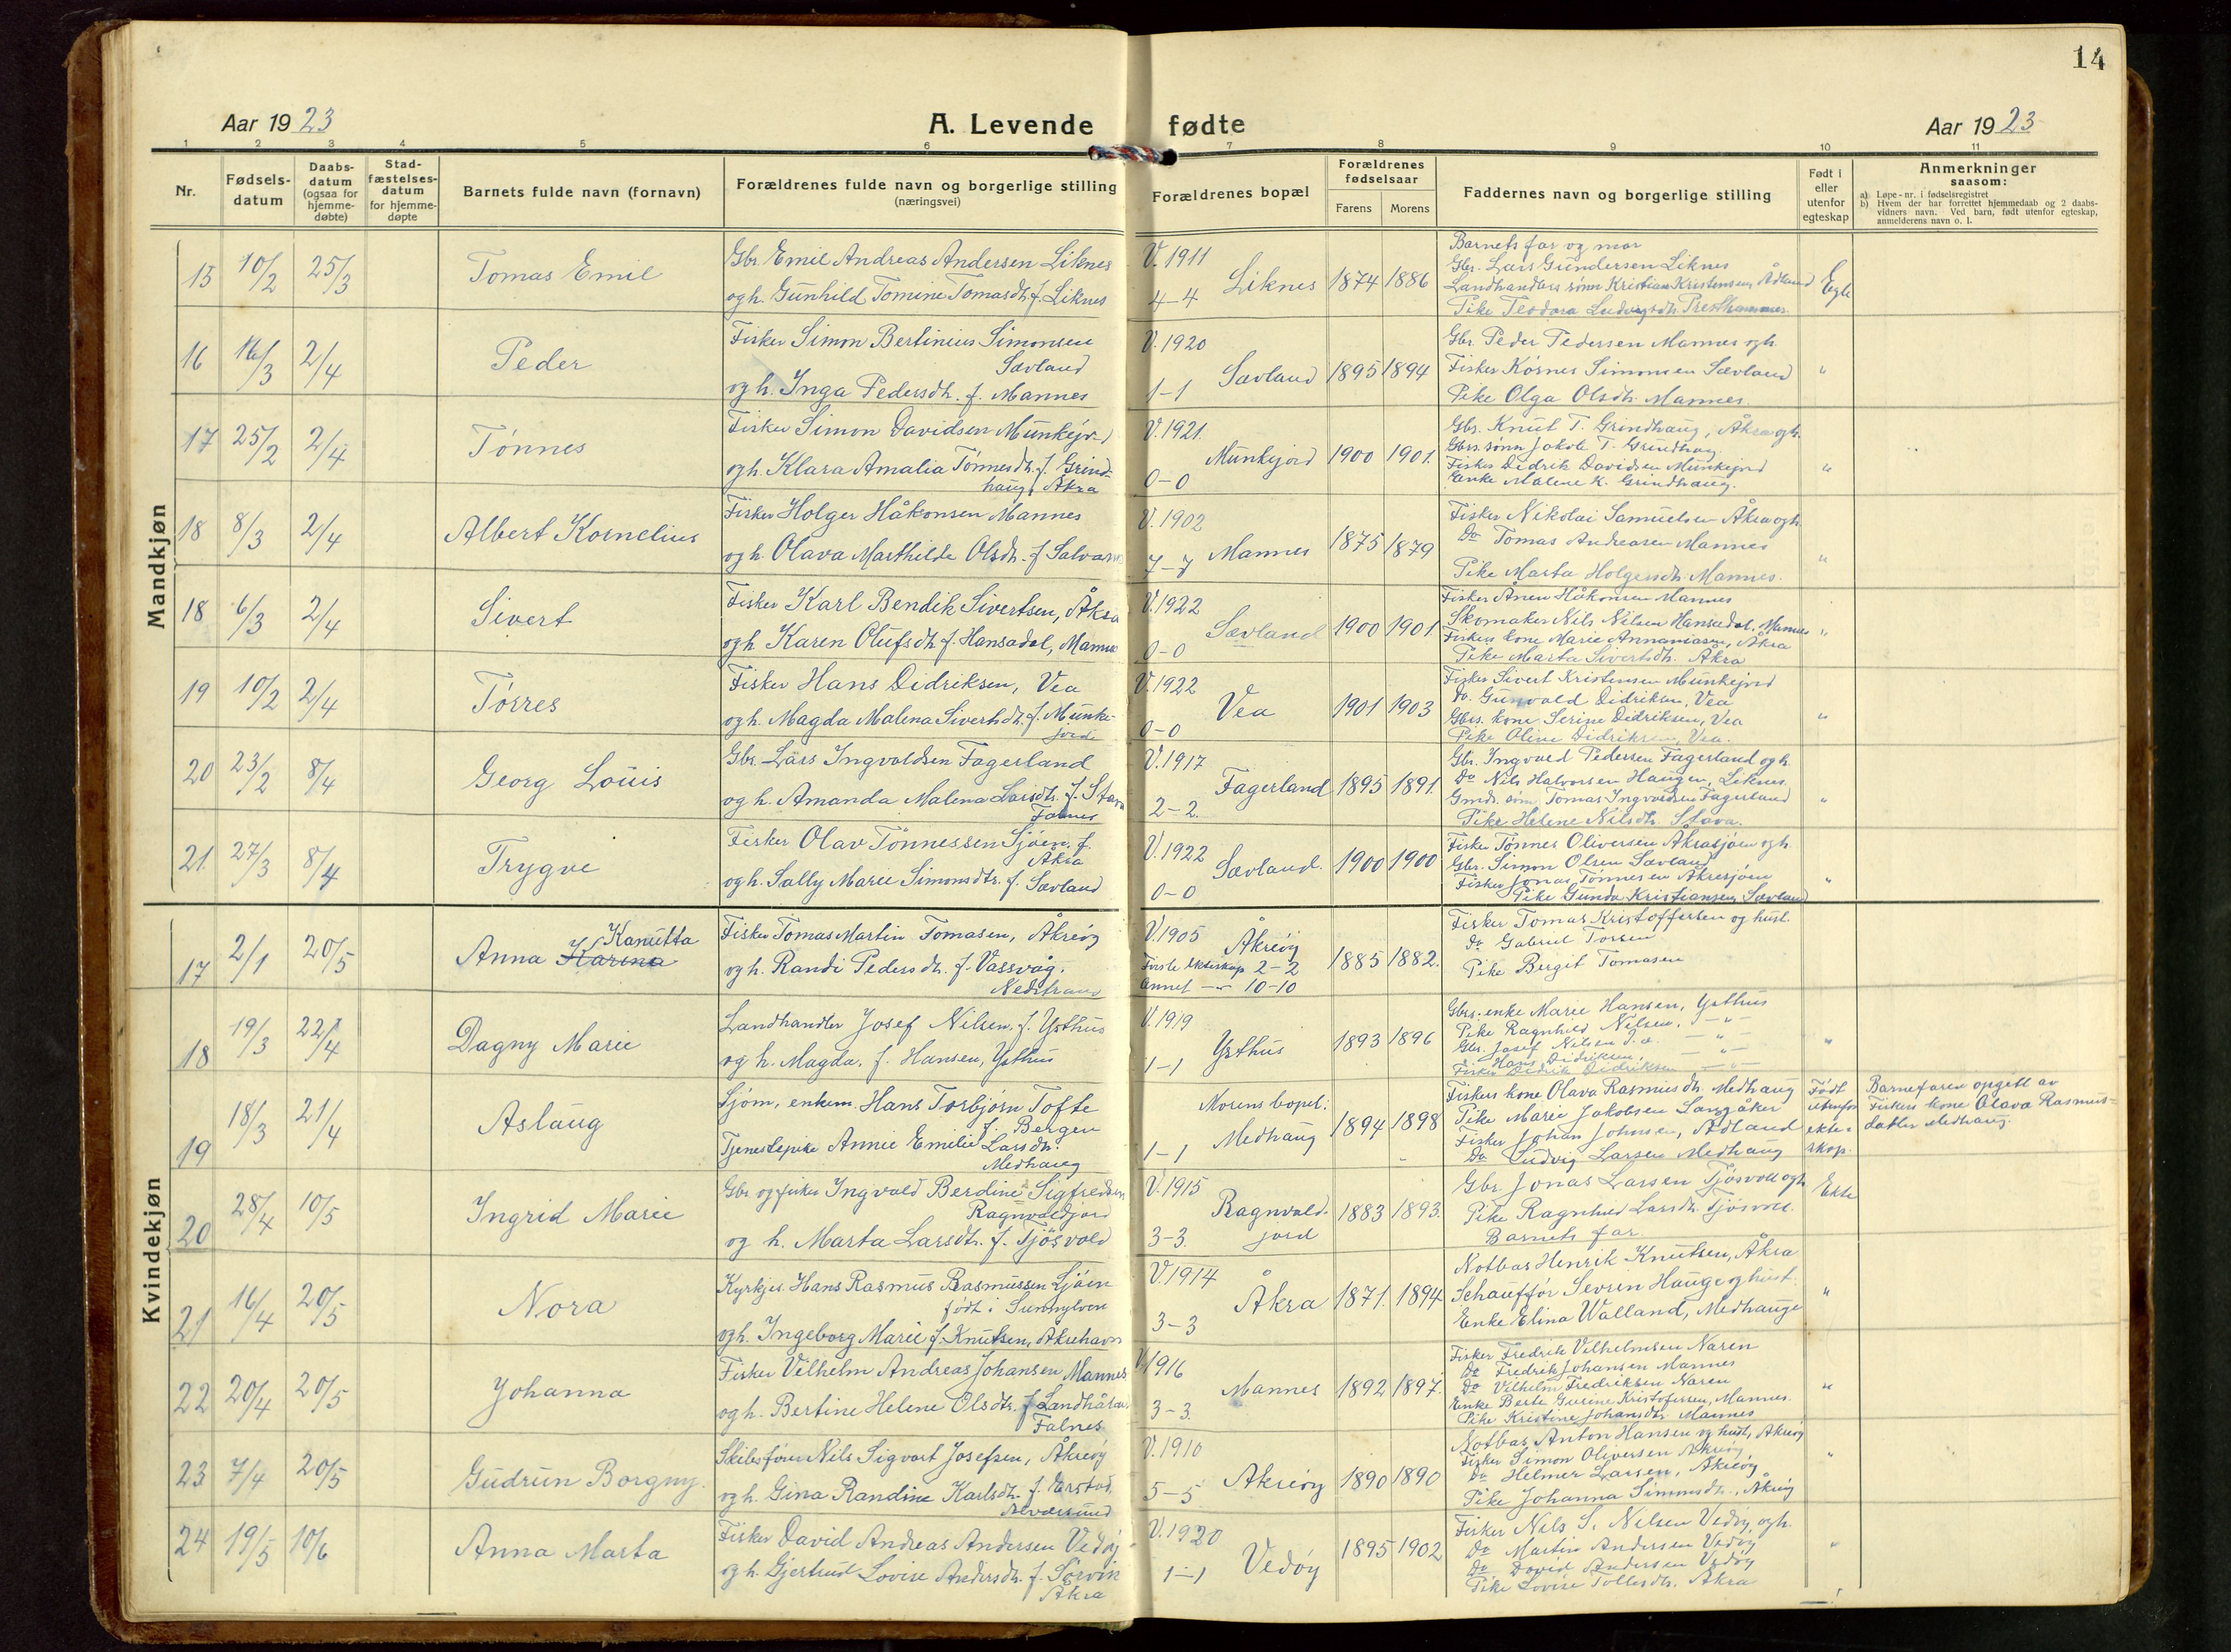 14
Aar 1923
A. Levende fødte
Aar 1923
1 2 3 4 5 6 7 8 9 10 11
Nr.
Fødsels-
datum
Daabs-
datum
(ogsaa for
hjemme-
døbte)
Stad-
fæstelses-
datum
for hjemme-
døpte
Barnets fulde navn (fornavn)
Forældrenes fulde navn og borgerlige stilling
(næringsvei)
Forældrenes bopæl
Forældrenes
fødselsaar
Farens
Morens
Faddernes navn og borgerlige stilling
Født i
eller
utenfor
egteskap
Anmerkninger
saasom:
a) Løpe-nr. i fødselsregistret
b) Hvem der har forrettet hjemmedaab og 2 daabs-
vidners navn. Ved barn, født utenfor egteskap,
anmelderens navn o. l.
Mandkjøn
15 10/2 25/3
Tomas Emil
Gbr. Emil Andreas Andersen Liknes
og h. Gunhild Tomine Tomasdh. f. Liknes
V. 1911
4-4 Liknes 1874 1886
Barnets far og mor
Gbr. Lars Gundersen Liknes
Landhandlers sønn Kristian Kristensen Ådland
Pike Teodora Ludvigsdh. Presthammer
Egte
16 16/3 2/4
Peder
Fisker Simon Bertinius Simonsen
Sævland
og h. Inga Pedersdh. f. Mannes
V. 1920
1-1 Sævland 1895 1894
Gbr. Peder Pedersen Mannes og h.
Fisker Kornes Simonsen Sævland
Pike Olga Olsdh. Mannes
"
17 25/2 2/4
Tønnes
Fisker Simon Davidsen Munkejord
og h. Klara Amalia Tønnesdh. f. Grind-
haug, Åkra
V. 1921.
0-0 Munkejord 1900 1901.
Gbr. Knut T. Grindhaug, Åkra og h.
Gbrs. sønn Jakob T. Grindhaug
Fisker Didrik Davidsen Munkejord
Enke Malene K. Grindhaug.
"
18 8/3 2/4
Albert Kornelius
Fisker Holger Håkonsen Mannes
og h. Olava Marthilde Olsdh. f.
V. 1902
7-7 Mannes 1875 1879
Fisker Nikolai Samuelsen Åkra og h.
Do Tomas Andreasen Mannes
Pike Marta Holgersdh. Mannes.
"
18 6/3 2/4
Sivert
Fisker Karl Bendik Sivertsen, Åkra
og h. Karen Olufsdh. f. Hansadal, Mannes
V. 1922
0-0 Sævland 1900 1901
Fisker Håkonsen Mannes
Skomaker Nils Nilsen Hansadal, Mannes
Fiskers kone Marie Annaniasen, Åkra
Pike Marta Sivertsdh. Åkra
"
19 10/2 2/4
Tørres
Fisker Hans Didriksen, Vea
og h. Magda Malena Sivertsdh. f. Munke-
jord
V. 1922
0-0 Vea 1901 1903
Fisker Sivert Kristensen Munkejord
Do. Gunvald Didriksen, Vea
Gbrs. kone Serine Didriksen, Vea
Pike Oline Didriksen, Vea.
"
20 23/2 8/4
Georg Louis
Gbr. Lars Ingvaldsen Fagerland
og h. Amanda Malena Larsdh. f. Stava
Falnes
V. 1917
2-2. Fagerland 1895 1891.
Gbr. Ingvald Pedersen Fagerland og h.
Do Nils Halvorsen Haugen, Liknes.
Tomas Ingvaldsen Fagerland
Pike Helene Nilsdh. Stava.
"
21. 27/3 8/4
Trygve
Fisker Olav Tønnessen Sjøen, f.
Åkra
og h. Sally Marie Simonsdtr. f. Sævland
V. 1922
0-0 Sævland. 1900 1900
Fisker Tønnes Oliversen Åkrasjøen og h.
Gbr. Simon Olsen Sævland
Fisker Jonas Tønnesen Åkresjøen
Pike Gunda Kristiansen, Sævland
"
Kvindekjøn
17 2/1 20/5
Kanutta
Anna Karina
Fisker Tomas Martin Tomasen, Åkreøy
og h. Randi Pedersdh. f. Vassvåg.
Nedstrand
V. 1905
Åkreøy
Første Ekteskap 2-2
Annet — " — 10-10
1885 1882.
Fisker Tomas Kristoffersen og hust.
Do Gabriel Torsen
Pike Bergit Tomasen
18 19/3 22/4
Dagny Marie
Landhandler Josef Nilsen, f. Ytthus
og h. Magda, f. Hansen, Ytthus
V. 1919
1-1 Ytthus 1893 1896
Gbrs. enke Marie Hansen, Ytthus
Pike Ragnhild Nilsen, — " —
Gbr. Josef Nilsen d. e. — " —
Hans Didriksen,
Fisker Didrik Didriksen — " —
"
19 18/3 21/4
Aslaug
Sjøm. enkem. Hans Torbjørn Tofte
f. Bergen
Tjenestepike Annie Emilie Larsdh.
Medhaug
Morens bopel:
1-1 Medhaug 1894 1898
Fiskers kone Olava Rasmusdh. Medhaug
Pike Marie Jakobsen Langåker
Fisker Johan Johnsen, Ådland
Do Ludvig Larsen Medhaug
Født
utenfor
ekte-
skap.
Barnefaren opgitt av
Fiskers kone Olava Rasmus-
datter Medhaug.
20 28/4 10/5
Ingrid Marie
Gbr og fisker Ingvald Berdines Sigfredsen
Ragnvaldjord
og h. Marta Larsdtr. f. Tjøsvold
V. 1915
3-3. Ragnvald-
jord
1883 1893.
Gbr Jonas Larsen Tjøsvoll og h
Pike Ragnhild Larsdh. Tjøsvoll.
Barnets far.
Ekte
21 16/4 20/5
Nora
Kyrkjes. Hans Rasmus Rasmussen Sjøen
født i Sunnylven
og h. Ingeborg Marie f. Knutsen, Åkrehavn
V. 1914
3-3 Åkra 1871. 1894
Notbas Henrik Knutsen, Åkra
Schauffør Severin Hauge og hust.
Enke Elina Walland, Medhauge
"
22 20/4 20/5
Johanna
Fisker Vilhelm Andreas Johansen Mannes
og h. Bertine Helene Olsdtr. f.
Falnes
V. 1916
3-3. Mannes 1892 1897.
Fisker Fredrik Vilhelmsen Naren
Do Fredrik Johansen Mannes
Do Vilhelm Fredriksen Naren
Enke Berte Gurine Kristofersen, Mannes.
Pike Kristine Johansdtr. Mannes
"
23 7/4 20/5
Gudrun Borgny.
Skibsfører Nils Sigvart Josefsen, Åkreøy
og h. Gina Randine Karlsdh. f.
Alversund
V. 1910
5-5 Åkreøy 1890 1890
Notbas Anton Hansen og hust, Åkreøy
Fisker Simon Oliversen Åkreøy
Do Helmer Larsen, Åkreøy
Pike Johanna Simonsdh., Åkreøy
"
24 19/5 10/6
Anna Marta
Fisker David Andreas Andersen Vedøy
og h. Gjertrud Lovise Andersdh. f. Sørvik
Åkra
V. 1920
1-1 Vedøy 1895 1902
Fisker Nils S. Nilsen Vedøy, og h.
Do Martin Andersen Vedøy
Do David Andersen Vedøy
Pike Lovise Tollesdh. Åkra
"